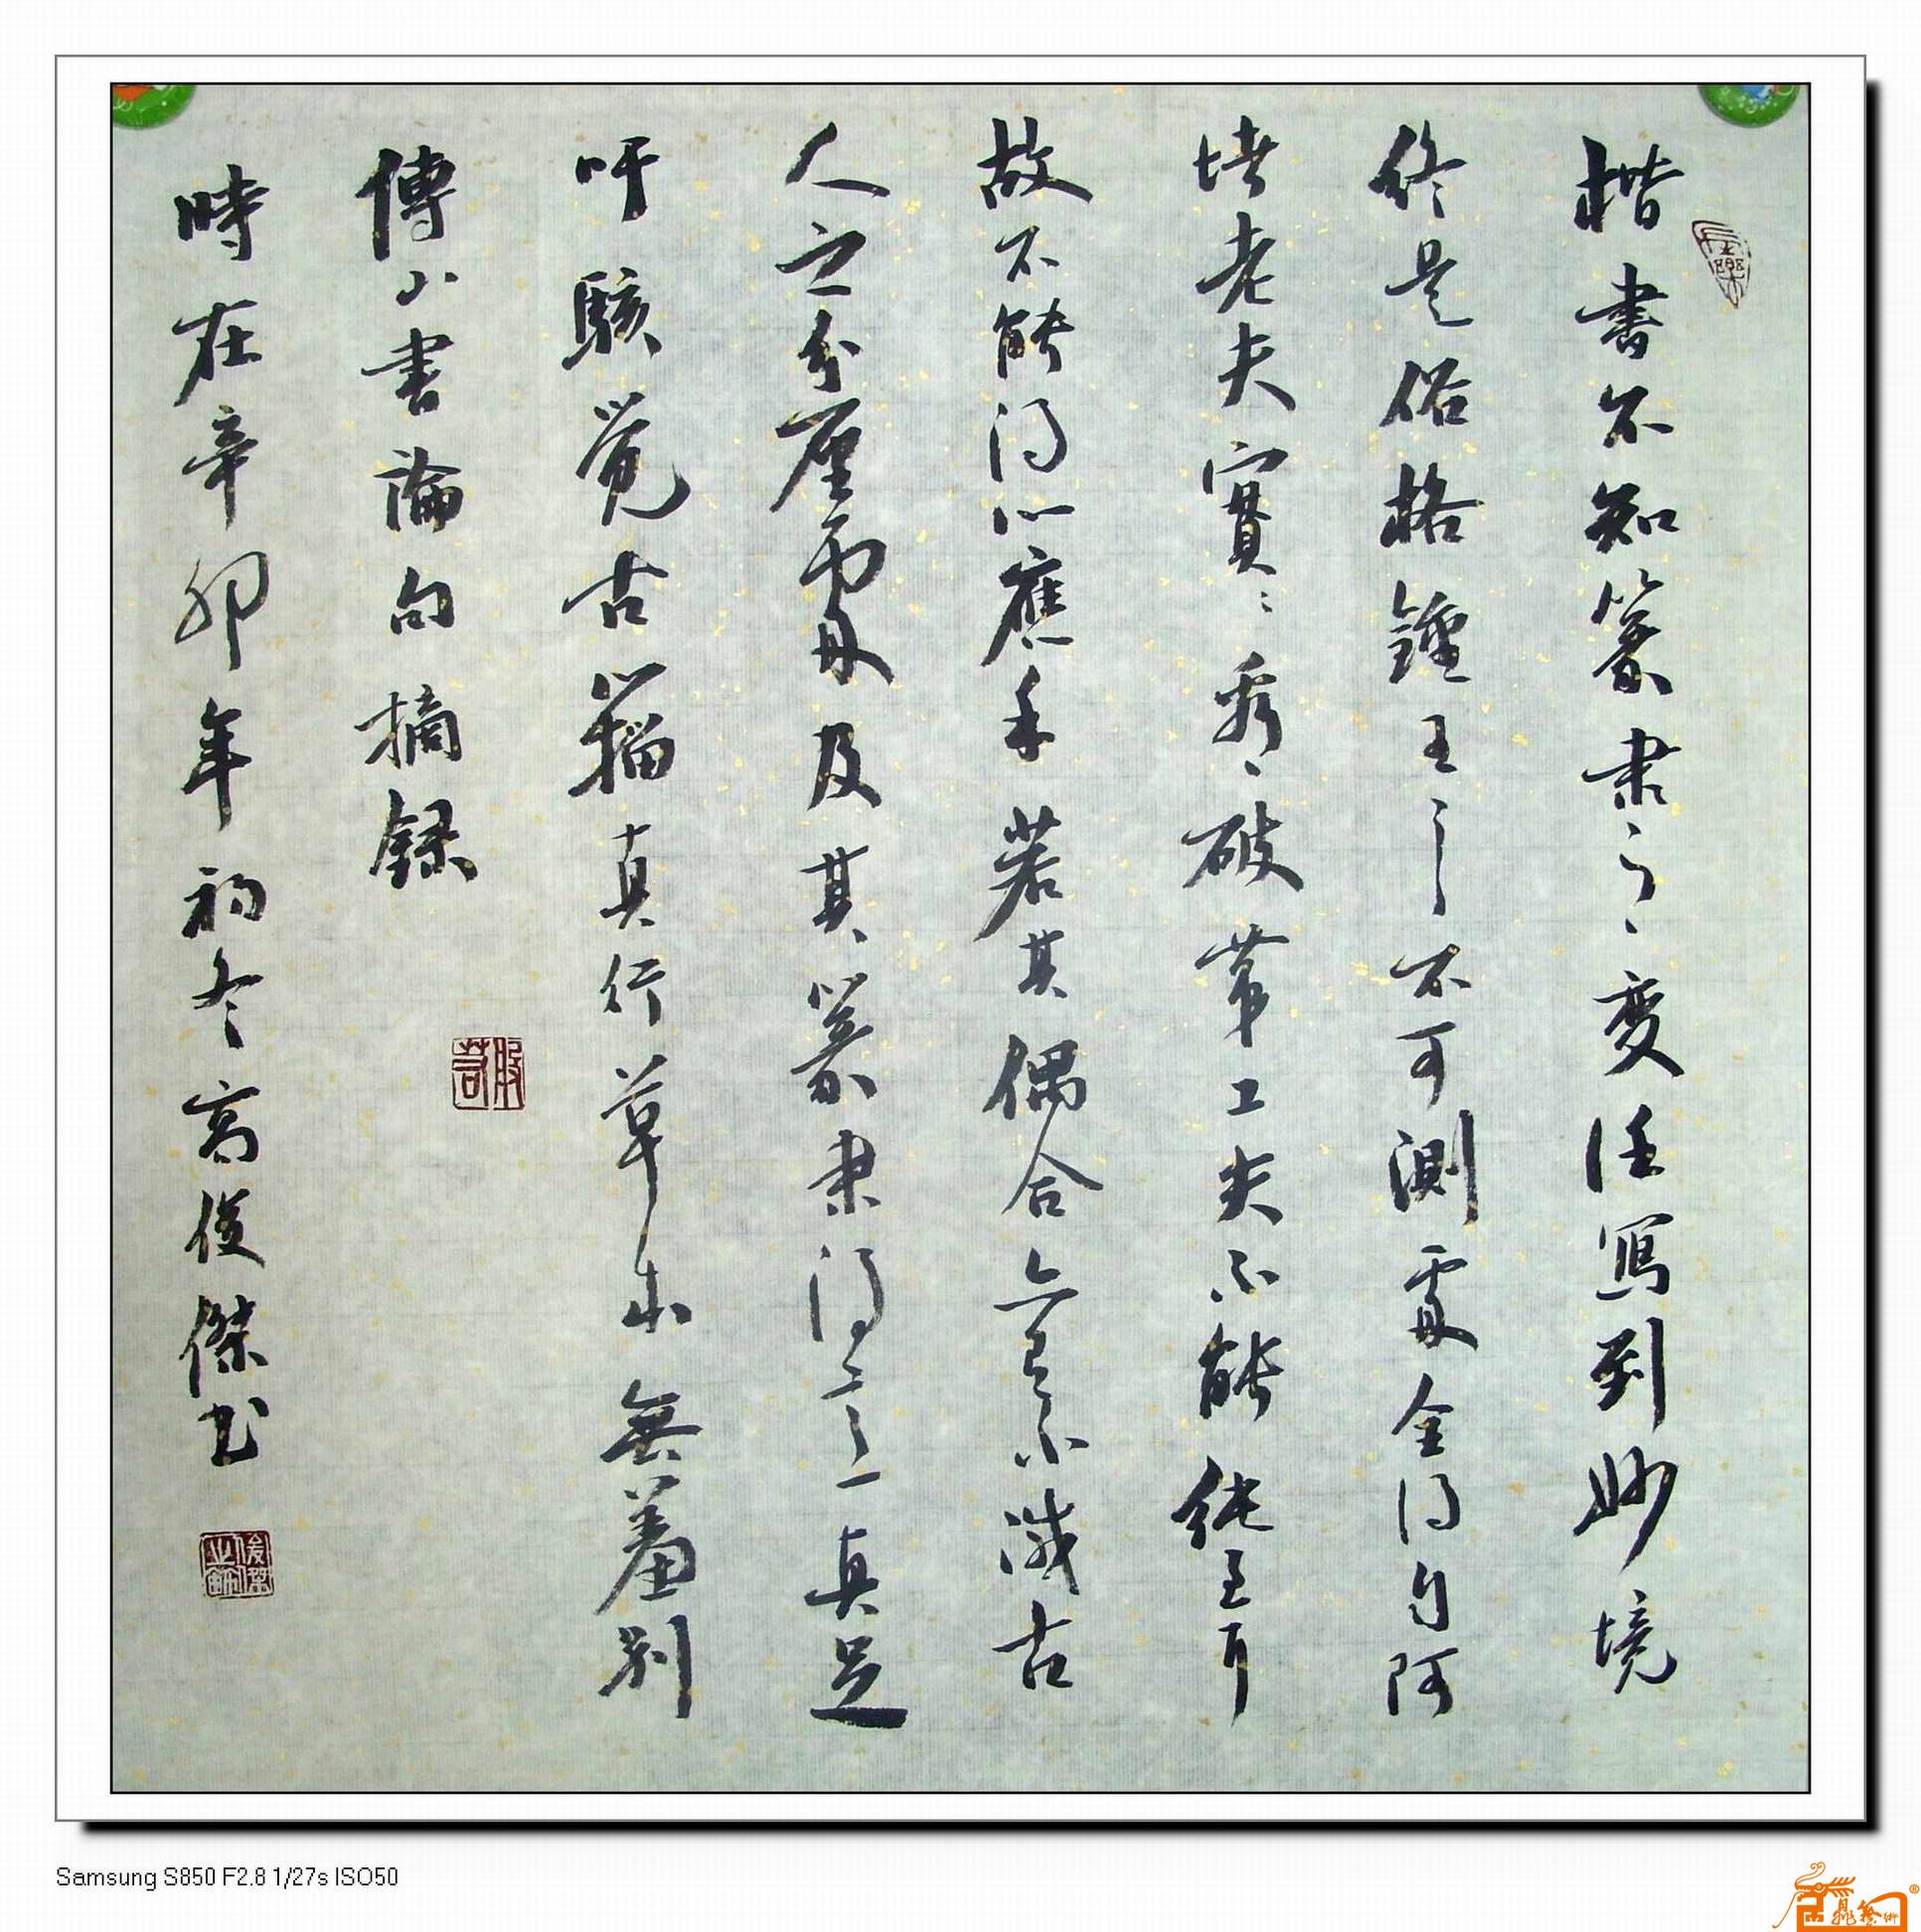 楷書不知篆隶之之變任寫到妙境
終是俗格鍾王之不可測處全得自阿
堵老夫實實看看破常工夫不能純至耳
故不能得心應手若其偶合亦有不減古
人之分厘處及其篆隶得意真足
吁駭覺古籀真行草隶無差別
傅山書論句摘録
時在辛卯年初冬高俊傑书
Samsung S850 F2.8 1/27s ISO50